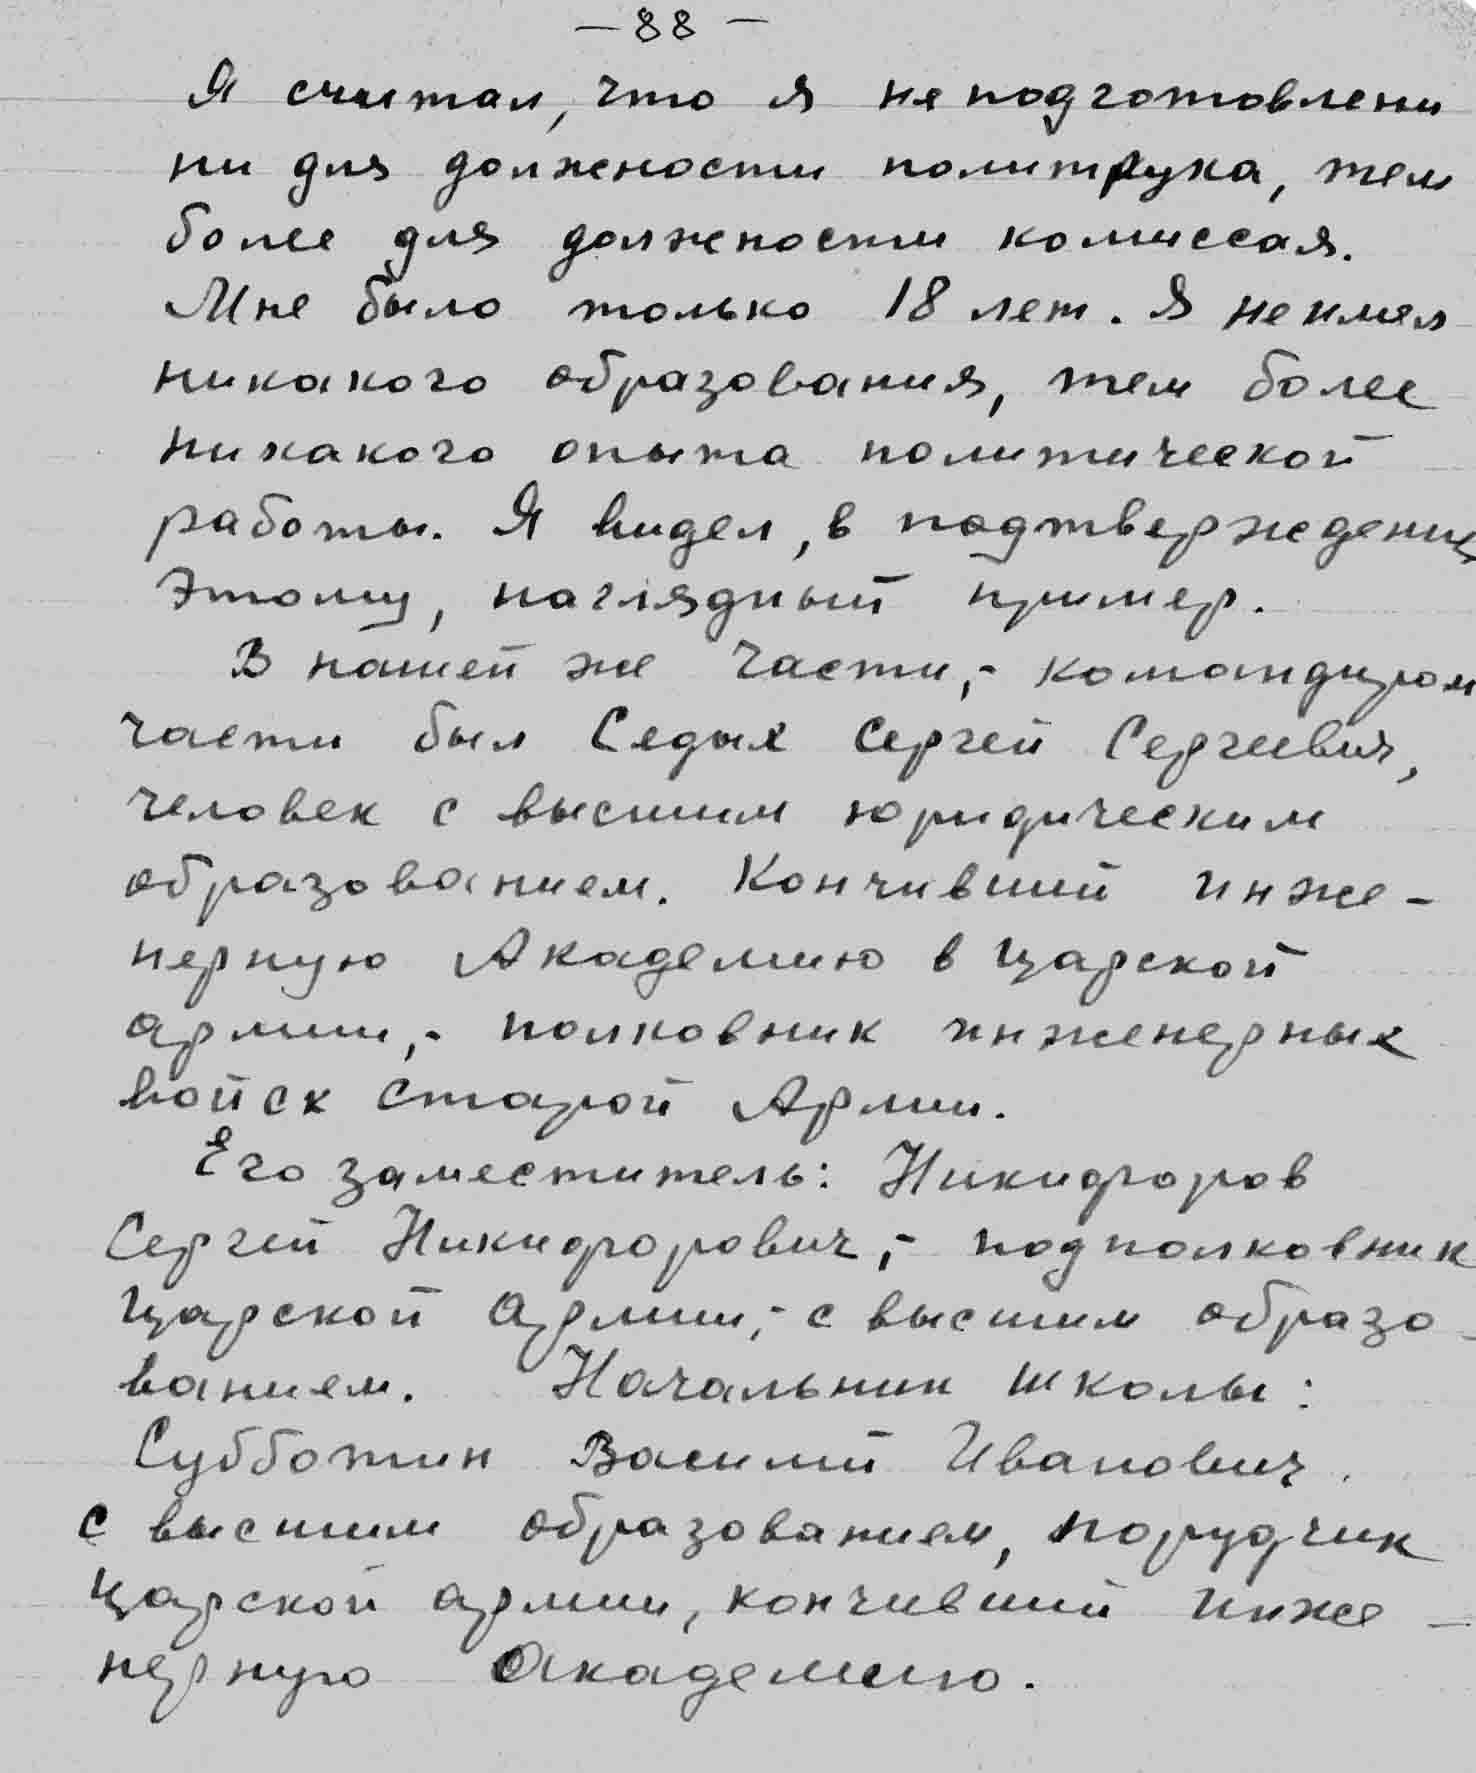 — 88 —
Я считал, что я не подготовлени
ни для должности политрука, тем
более для должности комиссая.
Мне было только 18 лет. Я не имел
никакого образования, тем более
никакого опыта политической
работы. Я видел, в подтверждении
этому, наглядный пример.
В нашей же части,- командиром
части был Седых Сергей Сергеевич,
человек с высшим юридическим
образованием. Кончивший инже-
нерную Академию в царской
армии,- полковник инженерных
войск старой Армии.
Его заместитель: Никифоров
Сергей Никифорович,- подполковник
царской Армии,- с высшим образо-
ванием. Начальник школы:
Субботин Василий Иванович.
с высшим образованием, порудчик
царской армии, кончивший инже-
нерную Академию.